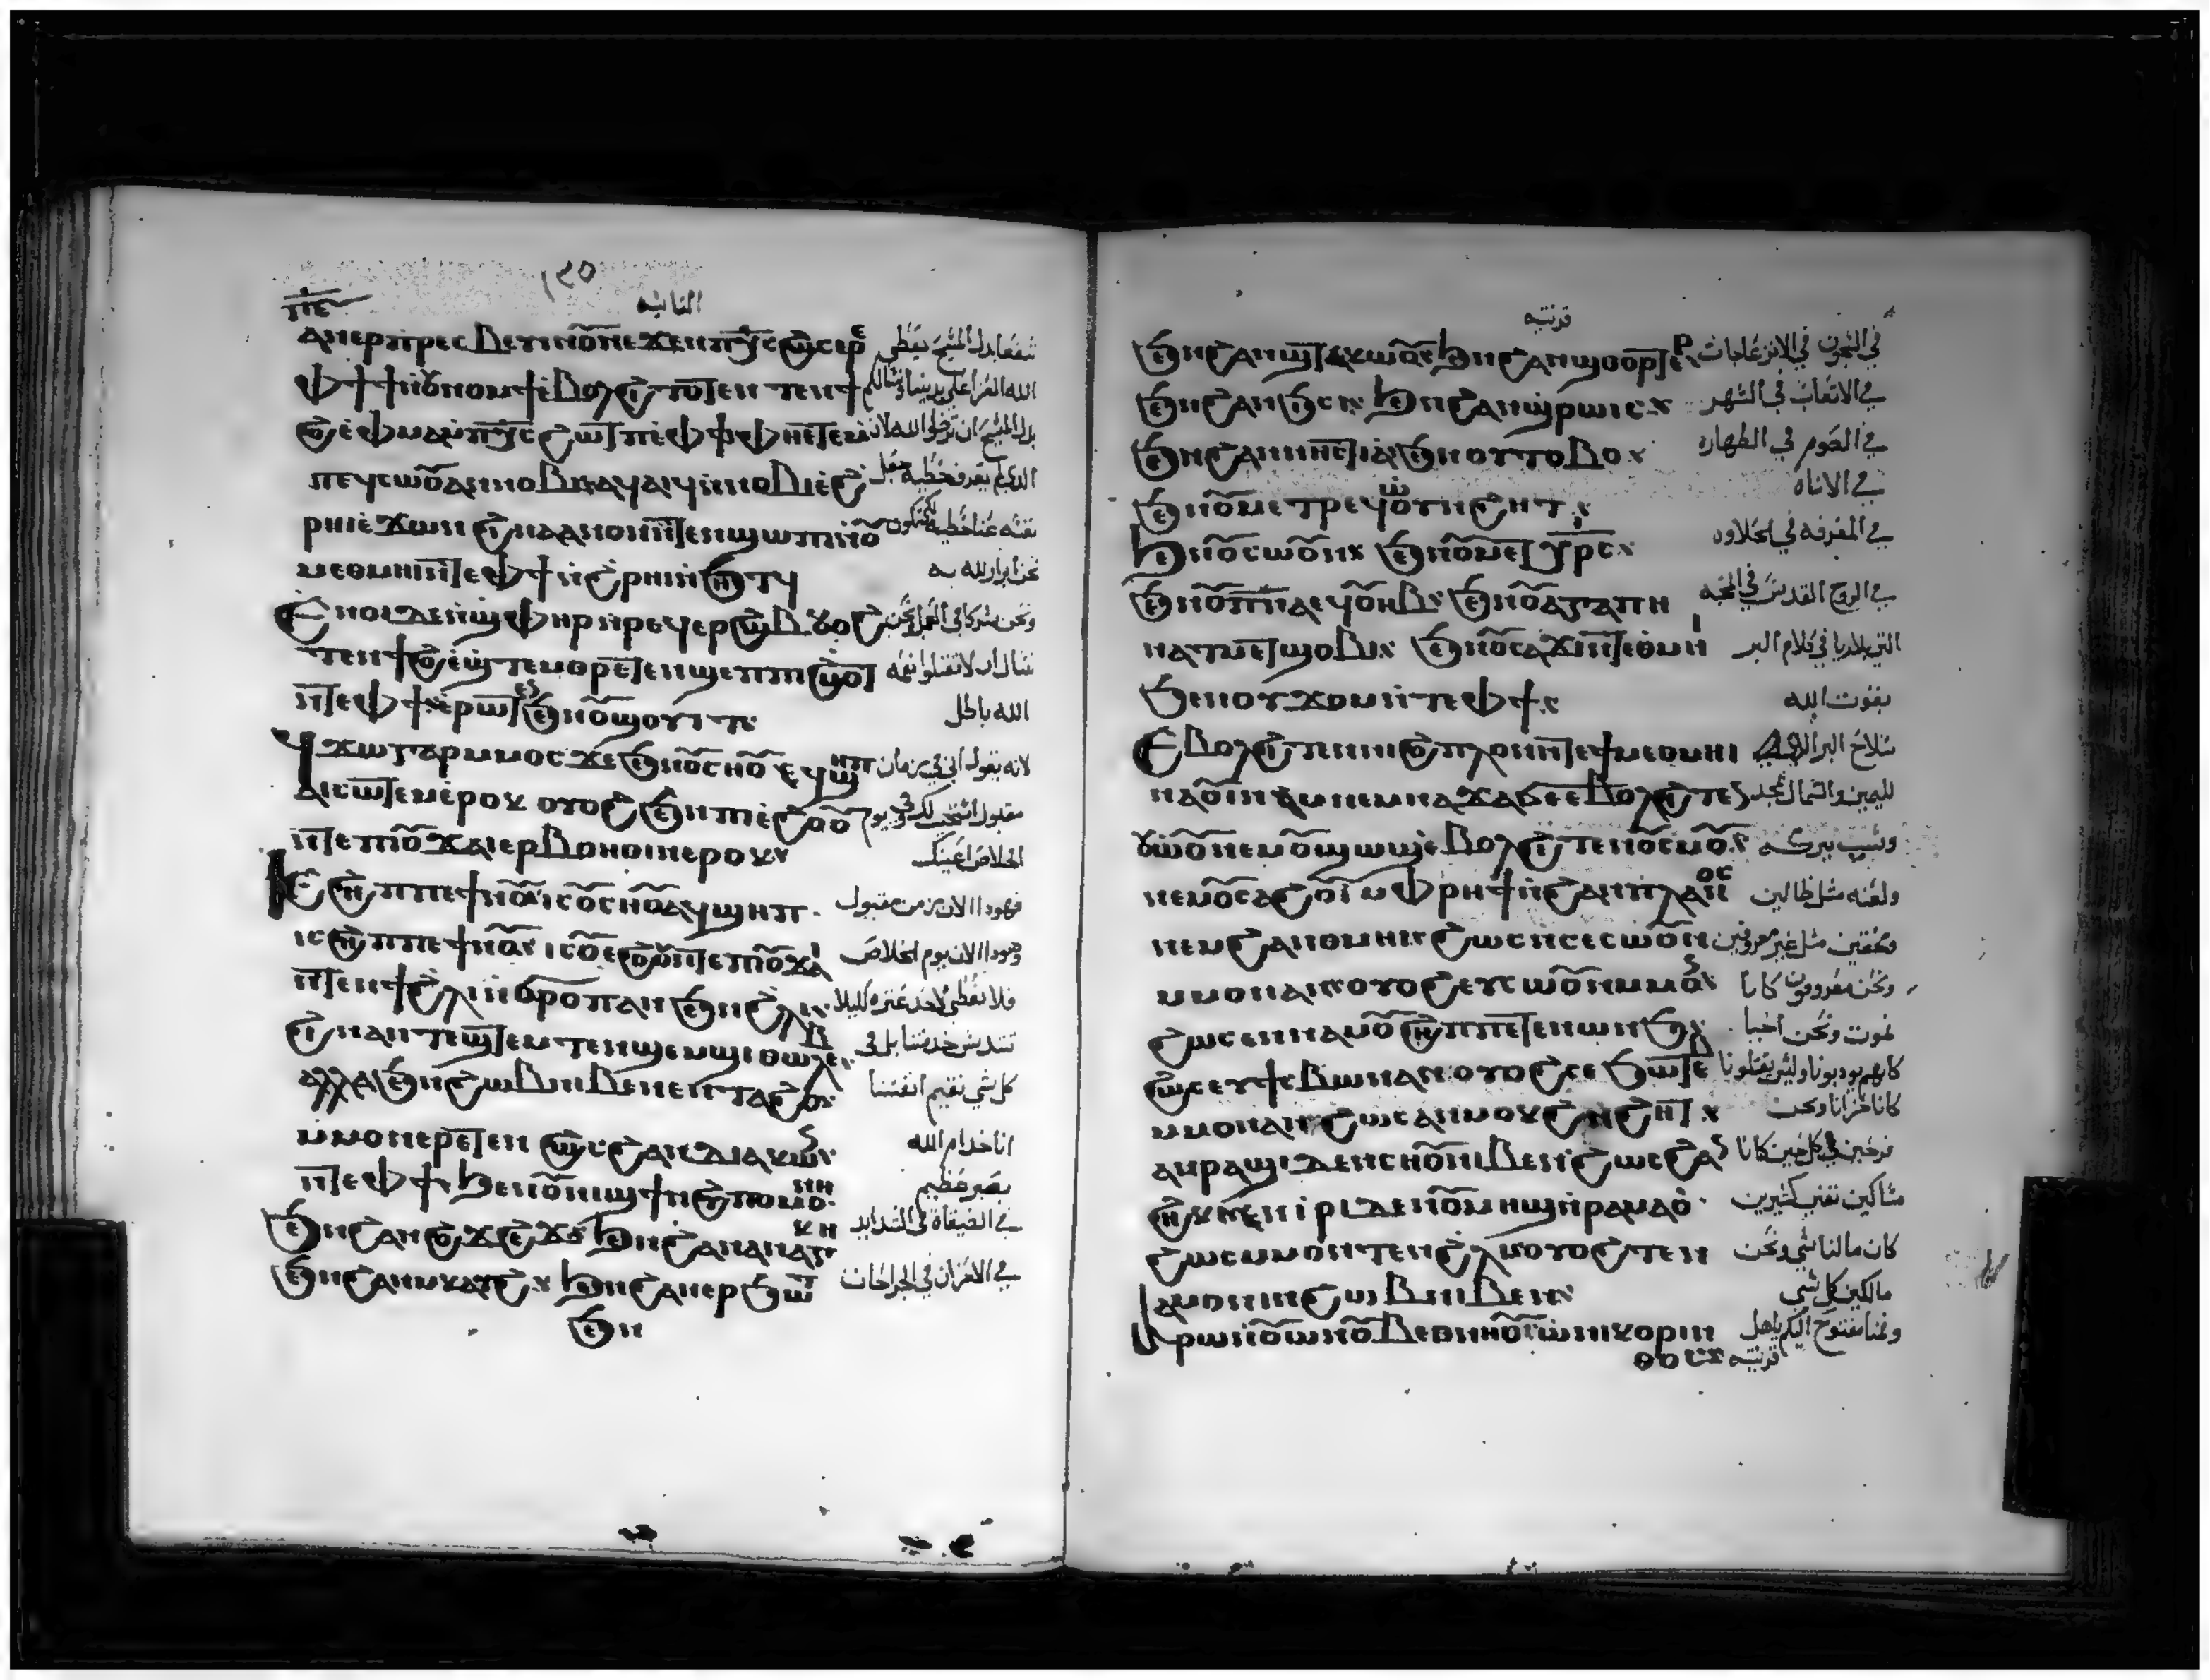 ١٩٥
ⲡ̅ⲉ̅ الثانيه
ⲁⲛⲉⲣⲡⲣⲉⲥⲃⲉⲩⲓⲛⲟⲩⲛ ϫⲉ ⲙⲡⲭ̅ⲥ̅ ϩⲱⲥ ⲉⲣⲉ المسيح
ⲫϯ ϯⲛⲟⲙϯ ⲉⲃⲟⲗϩⲓⲧⲟⲧⲉⲛ ⲧⲉⲛϯ الله
ϩⲟ ⲉϫⲉⲛ ⲡⲭ̅ⲥ̅ ϩⲱⲧⲡ ⲉⲫϯ ⲫⲏⲉⲧⲉ المسيح ان لان
ⲙⲡⲉϥⲥⲱⲟⲩⲛ ⲛⲛⲟⲃⲓ ⲁϥⲁⲓϥ ⲛⲛⲟⲃⲓ ⲉϩ الذي لم يعرف خطيه جعل
ⲣⲏⲓ ⲉϫⲱⲛ ϩⲓⲛⲁ ⲁⲛⲟⲛ ⲛⲧⲉⲛϣⲱⲡⲓ ⲛⲟⲩ نفسه عنا خطيه لكي نكون
ⲙⲉⲑⲙⲏⲓ ⲛⲧⲉ ⲫϯ ⲛϩⲣⲏⲓ ⲛϧⲏⲧϥ نحن ابرار لله به
ⲉⲛⲟⲓ ⲇⲉ ⲛϣⲫⲏⲣ ⲛⲣⲉϥⲉⲣϩⲱⲃ ونحن شركا في العمل
ⲧⲉⲛϯϩⲟ ⲉϣⲧⲉⲙⲟⲣⲉⲧⲉⲛϣⲉⲡ ⲡⲓϩⲙⲟⲧ نسال ان لا تقبلوا نعمه
ⲛⲧⲉ ⲫϯ ⲉⲣⲱⲧⲉⲛ ϧⲉⲛ ⲟⲩϣⲟⲩⲓⲧ الله باطل
ϥϫⲱ ⲅⲁⲣ ⲙⲙⲟⲥ ϫⲉ ϧⲉⲛ ⲟⲩⲥⲏⲟⲩ ⲉϥϣⲏⲡ لانه يقول اني في زمان
ⲁⲓⲥⲱⲧⲉⲙ ⲉⲣⲟⲕ ⲟⲩⲟϩ ϧⲉⲛ ⲡⲓⲉϩⲟⲟⲩ مقبول استجبت لك وفي يوم
ⲛⲧⲉ ⲡⲓⲟⲩϫⲁⲓ ⲉⲣⲃⲟⲏⲑⲓⲛ ⲉⲣⲟⲕ الخلاص اعينك
ϩⲏⲡⲡⲉ ϯⲛⲟⲩ ⲓⲥ ⲟⲩⲥⲏⲟⲩ ⲁϥϣⲏⲡ فهودا الان زمن مقبول
ⲓⲥ ϩⲏⲡⲡⲉ ϯⲛⲟⲩ ⲓⲥ ⲟⲩⲉϩⲟⲟⲩ ⲛⲧⲉ ⲡⲓⲟⲩϫⲁⲓ وهودا الان يوم الخلاص
ⲛⲧⲉⲛϯ ϩⲗⲓ ⲛϭⲣⲟⲡ ⲁⲛ ϧⲉⲛ ϩⲗⲓ فلا نعطي لاحد عتره
ϩⲓⲛⲁ ⲛⲧⲉϣⲧⲉⲙ ⲧⲉⲛϣⲉⲙϣⲓ ⲑⲱⲗⲉⲃ خدمتنا بل في
ⲁⲗⲗⲁ ϧⲉⲛ ϩⲱⲃ ⲛⲓⲃⲉⲛ ⲉⲛⲧⲁϩⲟ كل شي نقيم انفسنا
ⲙⲙⲟⲛ ⲉⲣⲉⲧⲉⲛ ϩⲱⲥ ϩⲁⲛⲇⲓⲁⲕⲱⲛ انا خدام الله
ⲛⲧⲉ ⲫϯ ϧⲉⲛ ⲟⲩⲛⲓϣϯ ⲛϩⲩⲡⲟⲙⲟⲛⲏ بصبر عظيم
ϧⲉⲛ ϩⲁⲛϩⲟϫϩⲉϫ ϧⲉⲛ ϩⲁⲛⲁⲛⲁⲅⲕⲏ في الضيقات في الشدايد
ϧⲉⲛ ϩⲁⲛⲙⲕⲁⲩϩ ϧⲉⲛ ϩⲁⲛⲉⲣϧⲱⲧ في الاحزان في الجراحات
ϧⲉⲛ
قرنتيه
ϧⲉⲛ ϩⲁⲛϣⲧⲉⲕⲱⲟⲩ ϧⲉⲛ ϩⲁⲛϣⲑⲟⲣⲧⲉⲣ في السجون في الانزعاجات
ϧⲉⲛ ϩⲁⲛϧⲓⲥⲓ ϧⲉⲛ ϩⲁⲛϣⲣⲱⲓⲥ في الاتعاب في السهر
ϧⲉⲛ ϩⲁⲛⲛⲏⲥⲧⲓⲁ ϧⲉⲛ ⲟⲩⲧⲟⲩⲃⲟ في الصوم في الطهاره
ϧⲉⲛ ⲟⲩⲙⲉⲧⲣⲉϥⲱⲟⲩⲛϩⲏⲧ في الاناه
ϧⲉⲛ ⲟⲩⲥⲱⲟⲩⲛ ϧⲉⲛ ⲟⲩⲙⲉⲧⲭⲣⲥ في المعرفه في الحلاوه
ϧⲉⲛ ⲟⲩⲡ̅ⲛ̅ⲁ̅ ⲉϥⲟⲩⲁⲃ ϧⲉⲛ ⲟⲩⲁⲅⲁⲡⲏ في الروح القدس في المحبه
ⲛⲁⲧⲙⲉⲧϣⲟⲃⲓ ϧⲉⲛ ⲟⲩⲥⲁϫⲓ ⲛⲧⲉ ⲑⲙⲏⲓ التي بلا ريا في كلام البر
ϧⲉⲛ ⲟⲩϫⲟⲙ ⲛⲧⲉ ⲫϯ بقوت الله
ⲉⲃⲟⲗϩⲓⲧⲉⲛ ⲛⲓϩⲟⲡⲗⲟⲛ ⲛⲧⲉ ϯⲙⲉⲑⲙⲏⲓ سلاح البر
ⲛⲁⲟⲩⲓⲛⲁⲙ ⲛⲉⲙ ⲛⲁϫⲁϭⲏ ⲉⲃⲟⲗϩⲓⲧⲉⲛ لليمين والشمال بمجد
ⲟⲩⲱⲟⲩ ⲛⲉⲙ ⲟⲩϣⲱϣ ⲉⲃⲟⲗϩⲓⲧⲉⲛ ⲟⲩⲥⲙⲟⲩ وسب ببركه
ⲛⲉⲙ ⲟⲩⲥⲁϩⲟⲩⲓ ⲙⲫⲣⲏϯ ⲛϩⲁⲛⲡⲗⲁⲛⲟⲥ ولعنه مثل ضالين
ⲛⲉⲙ ϩⲁⲛⲟⲙⲏⲓ ϩⲱⲥ ⲛⲥⲉⲥⲱⲟⲩⲛ ومحقين مثل غير معروفين
ⲙⲙⲟⲛ ⲁⲛ ⲟⲩⲟϩ ⲉⲩⲥⲱⲟⲩⲛ ⲙⲙⲟⲛ ونحن معروفون كانا
ϩⲱⲥ ⲉⲛⲛⲁⲙⲟⲩ ϩⲏⲡⲡⲉ ⲧⲉⲛⲱⲛϧ نموت ونحن احيا
ϩⲱⲥ ⲉⲩϯⲥⲃⲱ ⲛⲁⲛ ⲟⲩⲟϩ ⲥⲉ ϧⲱⲧⲉⲃ كانهم يودبونا وليس يقتلونا
ⲙⲙⲟⲛ ⲁⲛ ϩⲱⲥ ⲁⲛⲙⲟⲕϩ ⲛϩⲏⲧ كانا حزانا ونحن
ⲁⲛⲣⲁϣⲓ ⲇⲉ ⲛⲥⲏⲟⲩ ⲛⲓⲃⲉⲛ ϩⲱⲥ ϩⲁⲛ فرحين في كل حين كانا
ϩⲏⲕⲓ ⲉⲛⲓⲣⲓ ⲇⲉ ⲛⲟⲩⲙⲏϣ ⲛⲣⲁⲙⲁⲟ مساكين نغني كثيرين
ϩⲱⲥ ⲙⲙⲟⲛⲧⲉⲛ ϩⲗⲓ ⲟⲩⲟϩ ⲧⲉⲛ كان ما لنا شي ونحن
ⲁⲙⲟⲛⲓ ⲛϩⲱⲃ ⲛⲓⲃⲉⲛ مالكين كل شي
ⲣⲱⲛ ⲟⲩⲱⲛ ⲟⲩⲃⲉ ⲑⲏⲛⲟⲩ ⲱ ⲛⲓⲕⲟⲣⲓⲛ وفمنا مفتوح اليكم ياهل
ⲑⲟⲥ قرنتيه